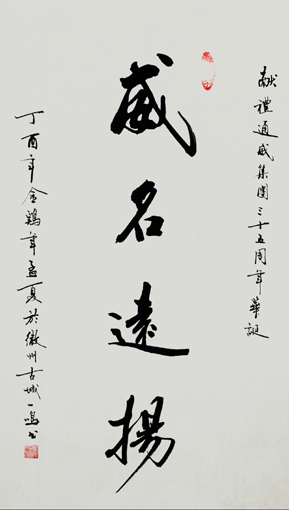 献禮通威集團三十五周年華誕
威名遠揚
丁酉年金鷄年孟夏於徽州古城一鳴书